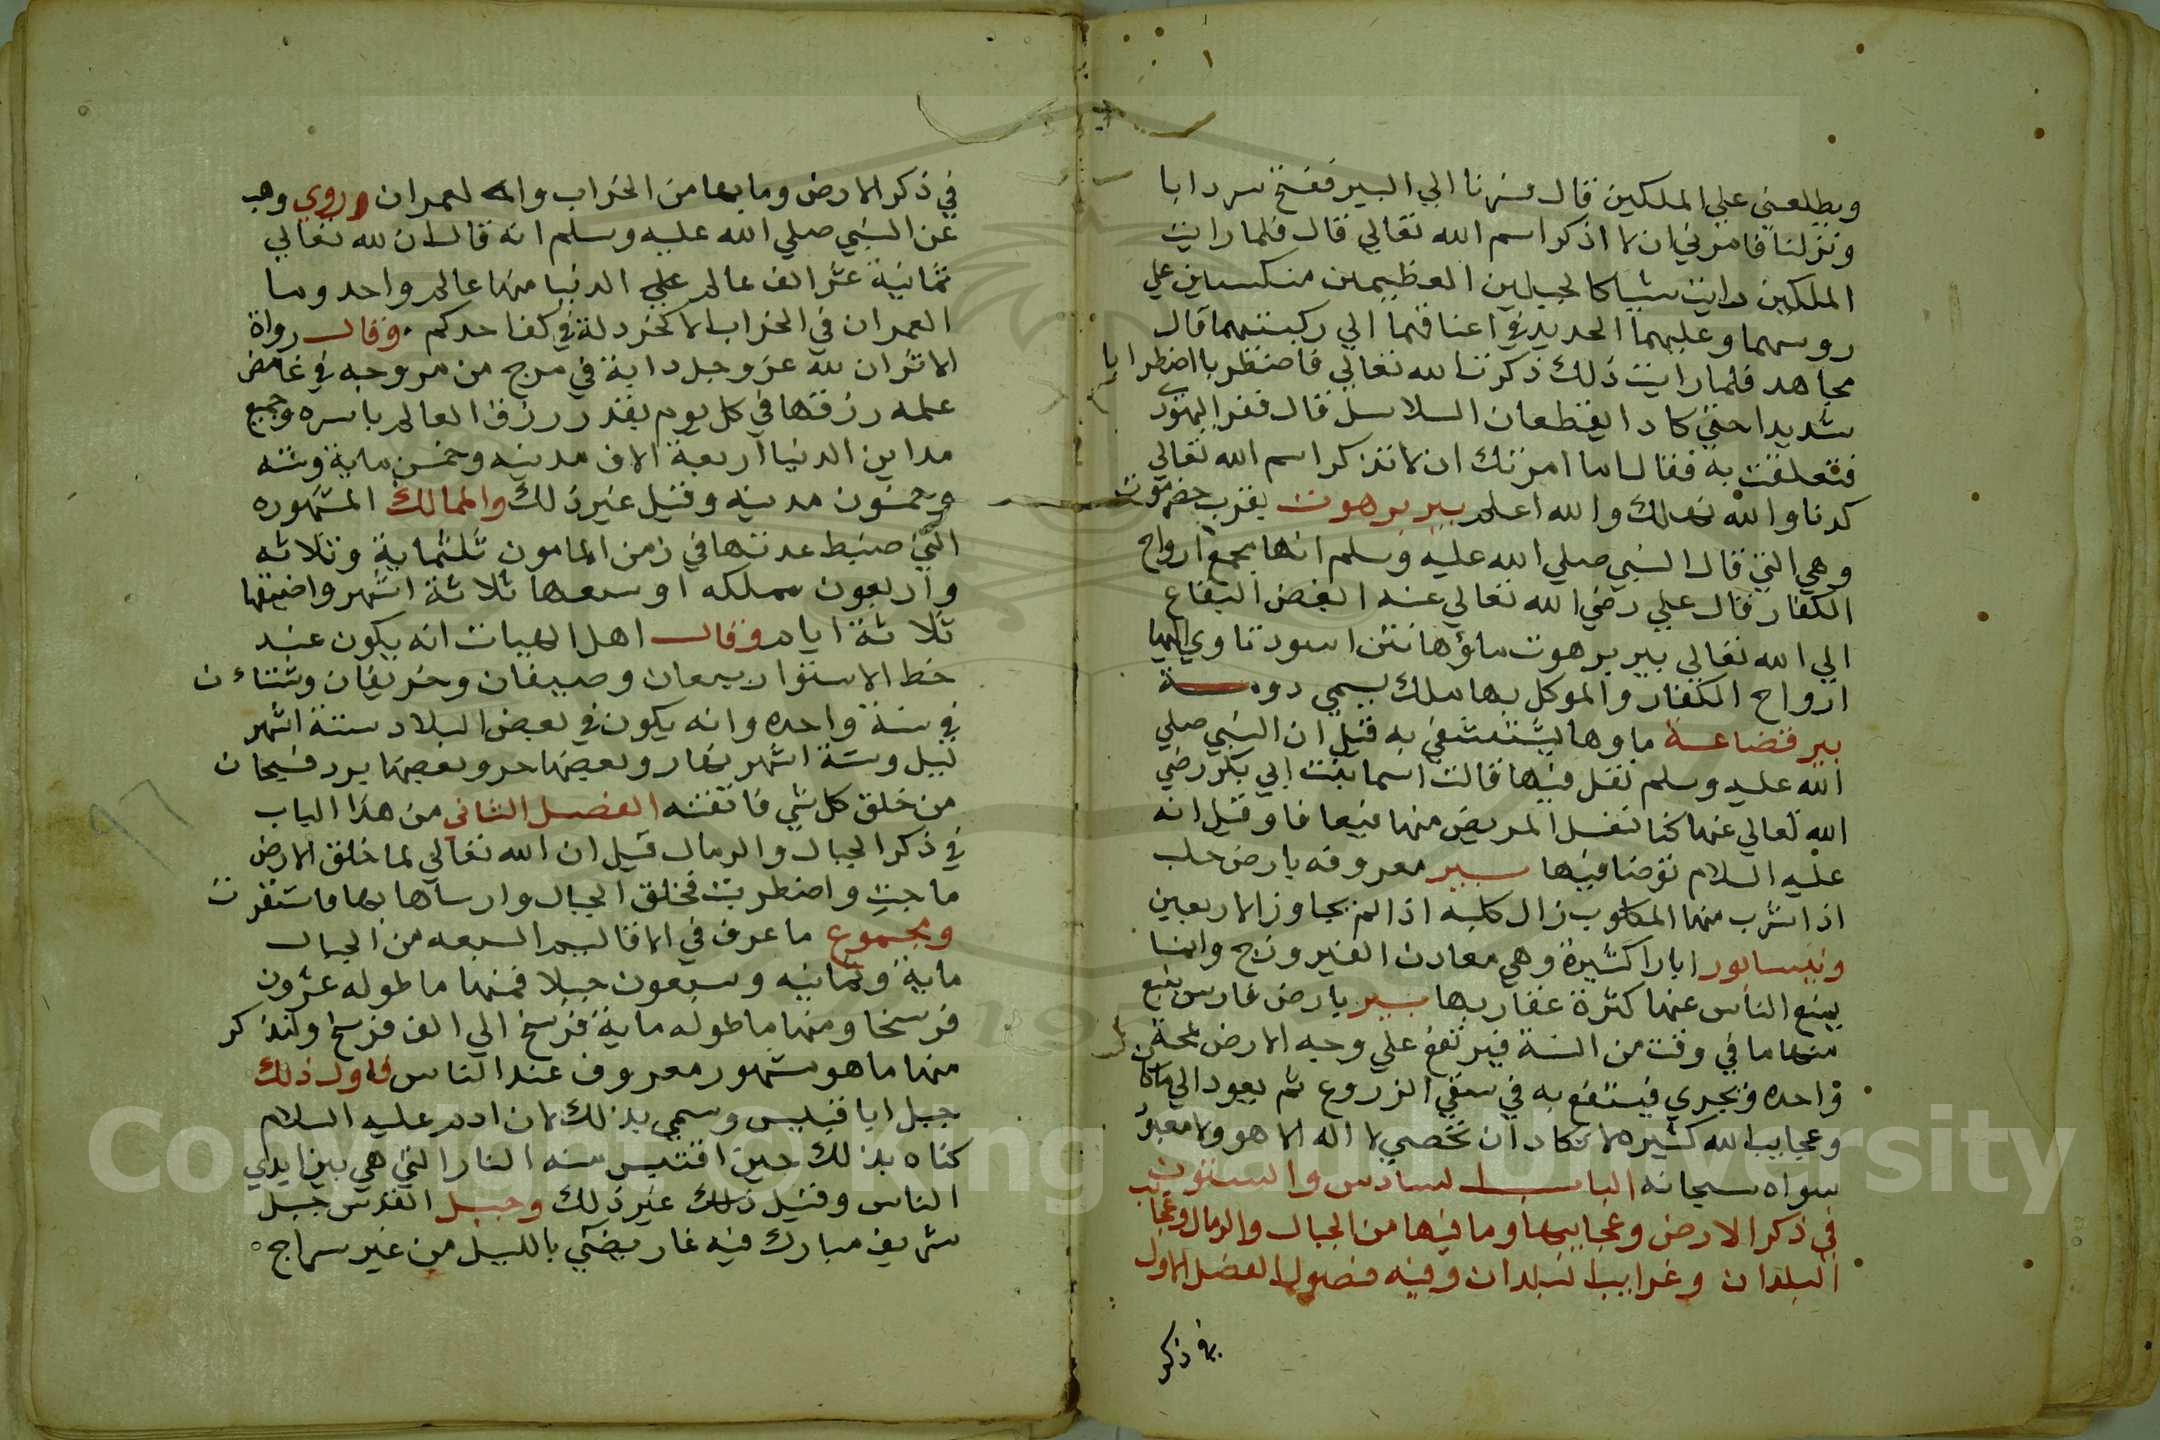 ويطلعني علي الملكين قال فسرنا الي البير ففتح سردابا
ونزلنا فامرني ان لا اذكر اسم الله تعالي قال فلما رايت
الملكين رايت شيا كالجبلين العظيمين منكسين علي
روسهما وعليهما الحديد في اعناقهما الي ركبتيهما قال
مجاهد فلما رايت ذلك ذكرت الله تعالي فاضطربا اضطرابا
شديدا حتي كادا يقطعان السلاسل قال ففر اليهودي
فتعلقت به فقال اما امرتك ان لا تذكر اسم الله تعالي
كدنا والله نهلك والله اعلم بير برهوت بقرب حضرموت
وهي التي قال النبي صلي الله عليه وسلم انها مجمع ارواح
الكفار قال علي رضي الله تعالي عنه ابغض البقاع
الي الله تعالي بير برهوت ماؤها نتن اسود تاوي اليها
ارواح الكفار والموكل بها ملك يسمي دومة
بير قضاعة ماوها يستشفي به قيل ان النبي صلي
الله عليه وسلم تفل فيها قالت اسما بنت ابي بكر رضي
الله تعالي عنها كنا نغسل المريض منها فيعافا وقيل انه
عليه السلام توضا فيها بير معروفه بارض حلب
اذا شرب منها المكلوب زال كلبه اذا لم يجاوز الاربعين
ونيسابور ابارا كثيرة وهي معادن الفيروزج وانما
يمنع الناس عنها كثرة عقاربها بير بارض فارس ينبع
منها ما في وقت من السنة فيرتفع علي وجه الارض لمحة
واحده ويجري فينتفع به في سقي الزروع ثم يعود الي ما كان
وعجايب الله كثيره لا تكاد ان تحصي لا اله الا هو ولا معبود
سواه سبحانه الباب السادس والستون
في ذكر الارض وعجايبها وما فيها من الجبال والرمال وعجايب
البلدان وغرايب البلدان وفيه فصول الفصل الاول
في ذكر
في ذكر الارض وما بها من الخراب والعمران وروي وهب
عن النبي صلي الله عليه وسلم انه قال ان لله تعالي
ثمانية عشر الف عالم علي الدنيا منها عالم واحد وما
العمران في الخراب الا كخردلة في كف احدكم . وقال رواة
الاثر ان لله عز وجل دابة في مرج من مروجه في غامض
علمه رزقها في كل يوم بقدر رزق العالم باسره وجميع
مداين الدنيا اربعة الاف مدينه وخمس ماية وسته
وخمسون مدينه وقيل غير ذلك والممالك المشهوره
التي ضبط عدتها في زمن المامون ثلثماية وثلاثه
واربعون مملكه اوسعها ثلاثة اشهر واضيقها
ثلاثة ايام وقال اهل الهيات انه يكون عند
خط الاستوا ربيعان وصيفان وخريفان وشتاءن
في سنة واحده وانه يكون في بعض البلاد ستة اشهر
ليل وستة اشهر نهار وبعضها حر وبعضها برد فسبحان
من خلق كل شي فاتقنه الفصل الثاني من هذا الباب
في ذكر الجبال والرمال قيل ان الله تعالي لما خلق الارض
ماجت واضطربت فخلق الجبال وارساها بها فاستقرت
ومجموع ما عرف في الاقاليم السبعه من الجبال
ماية وثمانيه وسبعون جبلا فمنها ما طوله عشرون
فرسخا ومنها ما طوله ماية فرسخ الي الف فرسخ ولنذكر
منها ما هو مشهور معروف عند الناس فاول ذلك
جبل اباقبيس وسمي بذلك لان ادم عليه السلام
كناه بذلك حين اقتبس منه النار التي هي بين ايدي
الناس وقيل ذلك غير ذلك وجبل القدس جبل
شريف مبارك فيه غار يضي بالليل من غير سراج